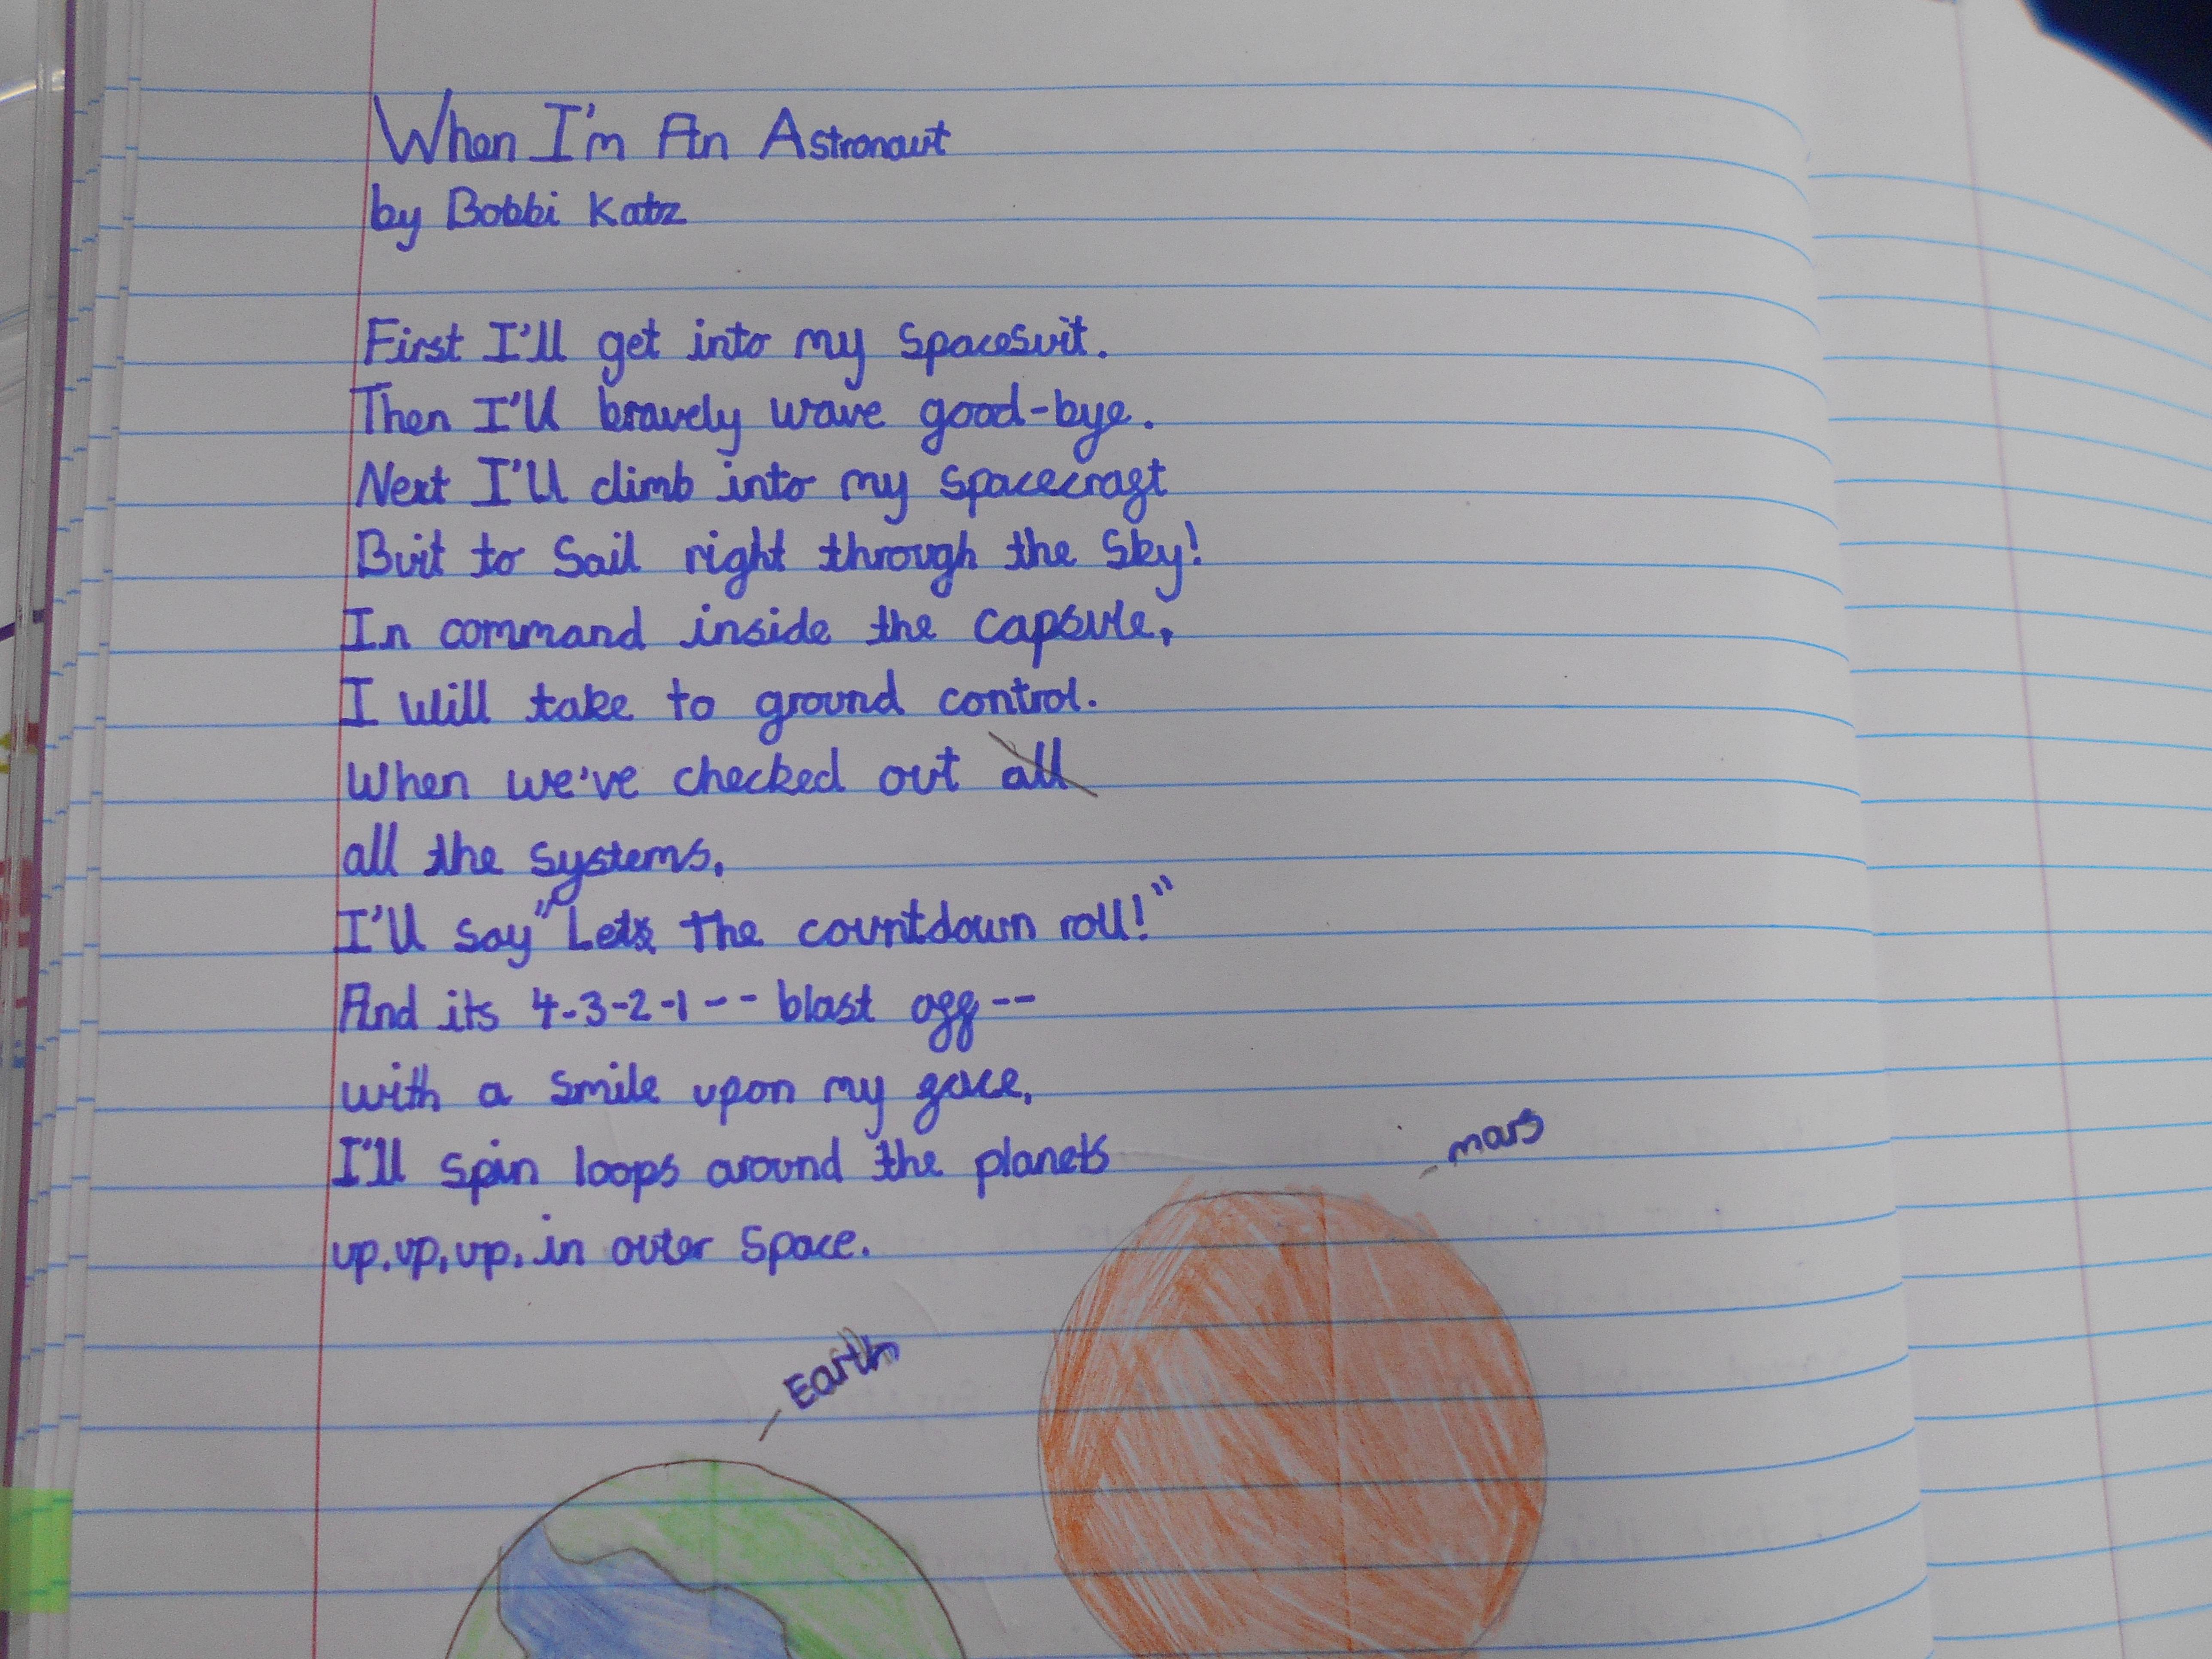 When I'm An Astronaut
by Bobbi Katz
First I'll get into my spacesuit.
Then I'll bravely wave good-bye.
Next I'll climb into my spacecraft
Buit to Sail right through the Sky!
In command inside the capsule,
I will take to ground control.
When we've checked out all
all the systems,
I'll say "Lets the countdown roll!"
And its 4-3-2-1-- blast off--
with a smile upon my face,
I'll spin loops around the planets
up, up, up, in outer Space.
mars
Earth